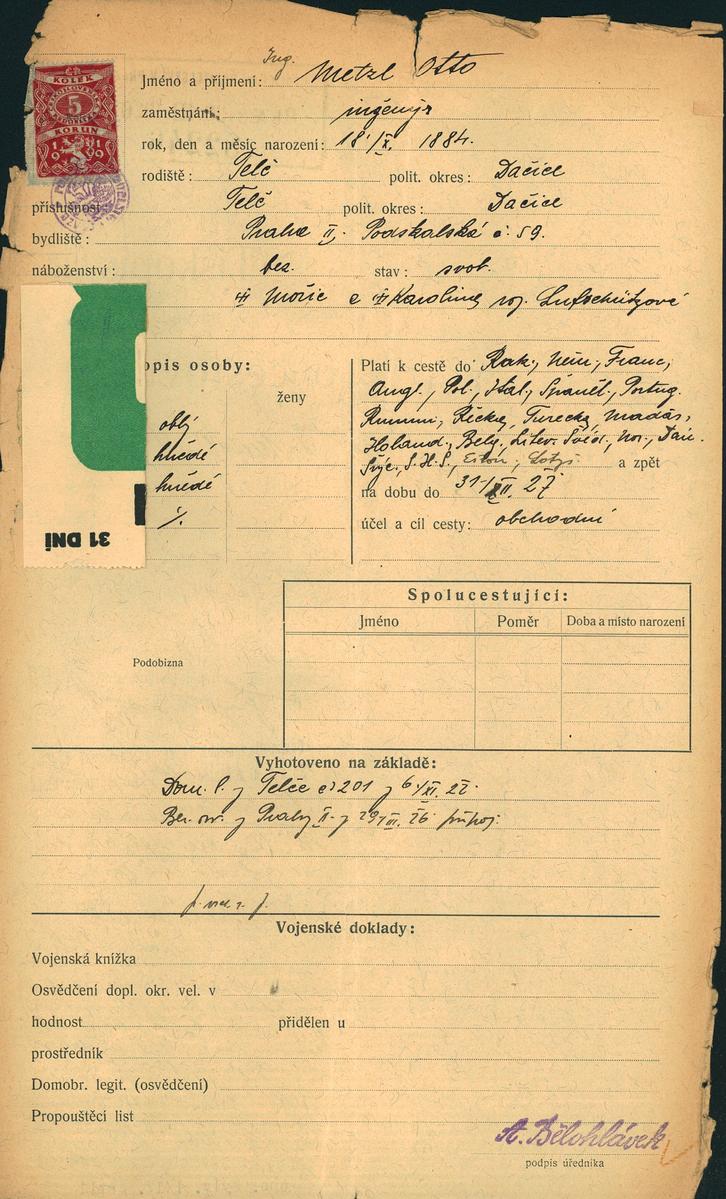 KOLEK
5
KORUN
1919
Ing.
Jméno a příjmení: Metzl Otto
zaměstnání: inženýr
rok, den a měsíc narození: 18./X. 1884.
rodiště: Telč polit. okres: Dačice
příslušnost Telč polit. okres: Dačice
bydliště: Praha II. Podskalská č. 59.
náboženství: bez. stav: svob.
Mořic a Karolina roz. Lufschützová
opis osoby:
ženy
oblý
hnědé
hnědé
31 DNÍ
Platí k cestě do Rak., Něm., Franc.,
Angl., Pol., Ital., Španěl., Portug.
Rumun., Řecka, Turecka, Maďar.,
Holand., Belg., Litev. Švéd., Nor., Dán.
Švýc., S.H.S., Eston., Lotyš. a zpět
na dobu do 31/XII. 27
účel a cíl cesty: obchodní
Spolucestující:
Jméno Poměr Doba a místo narození
Podobizna
Vyhotoveno na základě:
Dom. l. z Telče č 201 z 6/XI. 22.
Ber. z Prahy II. z 29/III. 26
Vojenské doklady:
Vojenská knížka
Osvědčení dopl. okr. vel. v
hodnost přidělen u
prostředník
Domobr. legit. (osvědčení)
Propouštěcí list
A. Bělohlávek
podpis úředníka